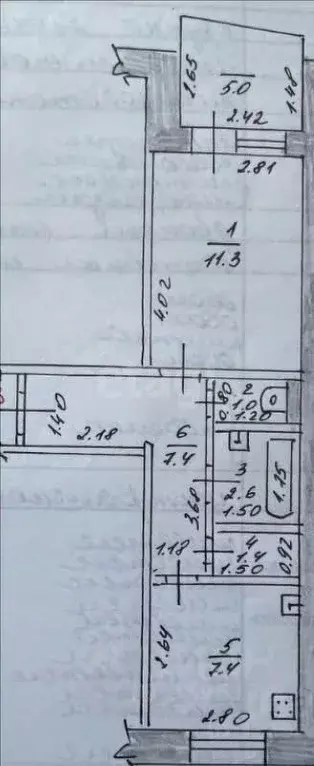 2.65
5.0
1.48
2.42
2.81
1
11.3
4.02
2
0.80
1.0
1.20
1.40
2.18
6
7.4
3
2.6
1.50
1.75
3.68
4
1.4
1.50
0.92
1.18
2.64
5
7.4
2.80